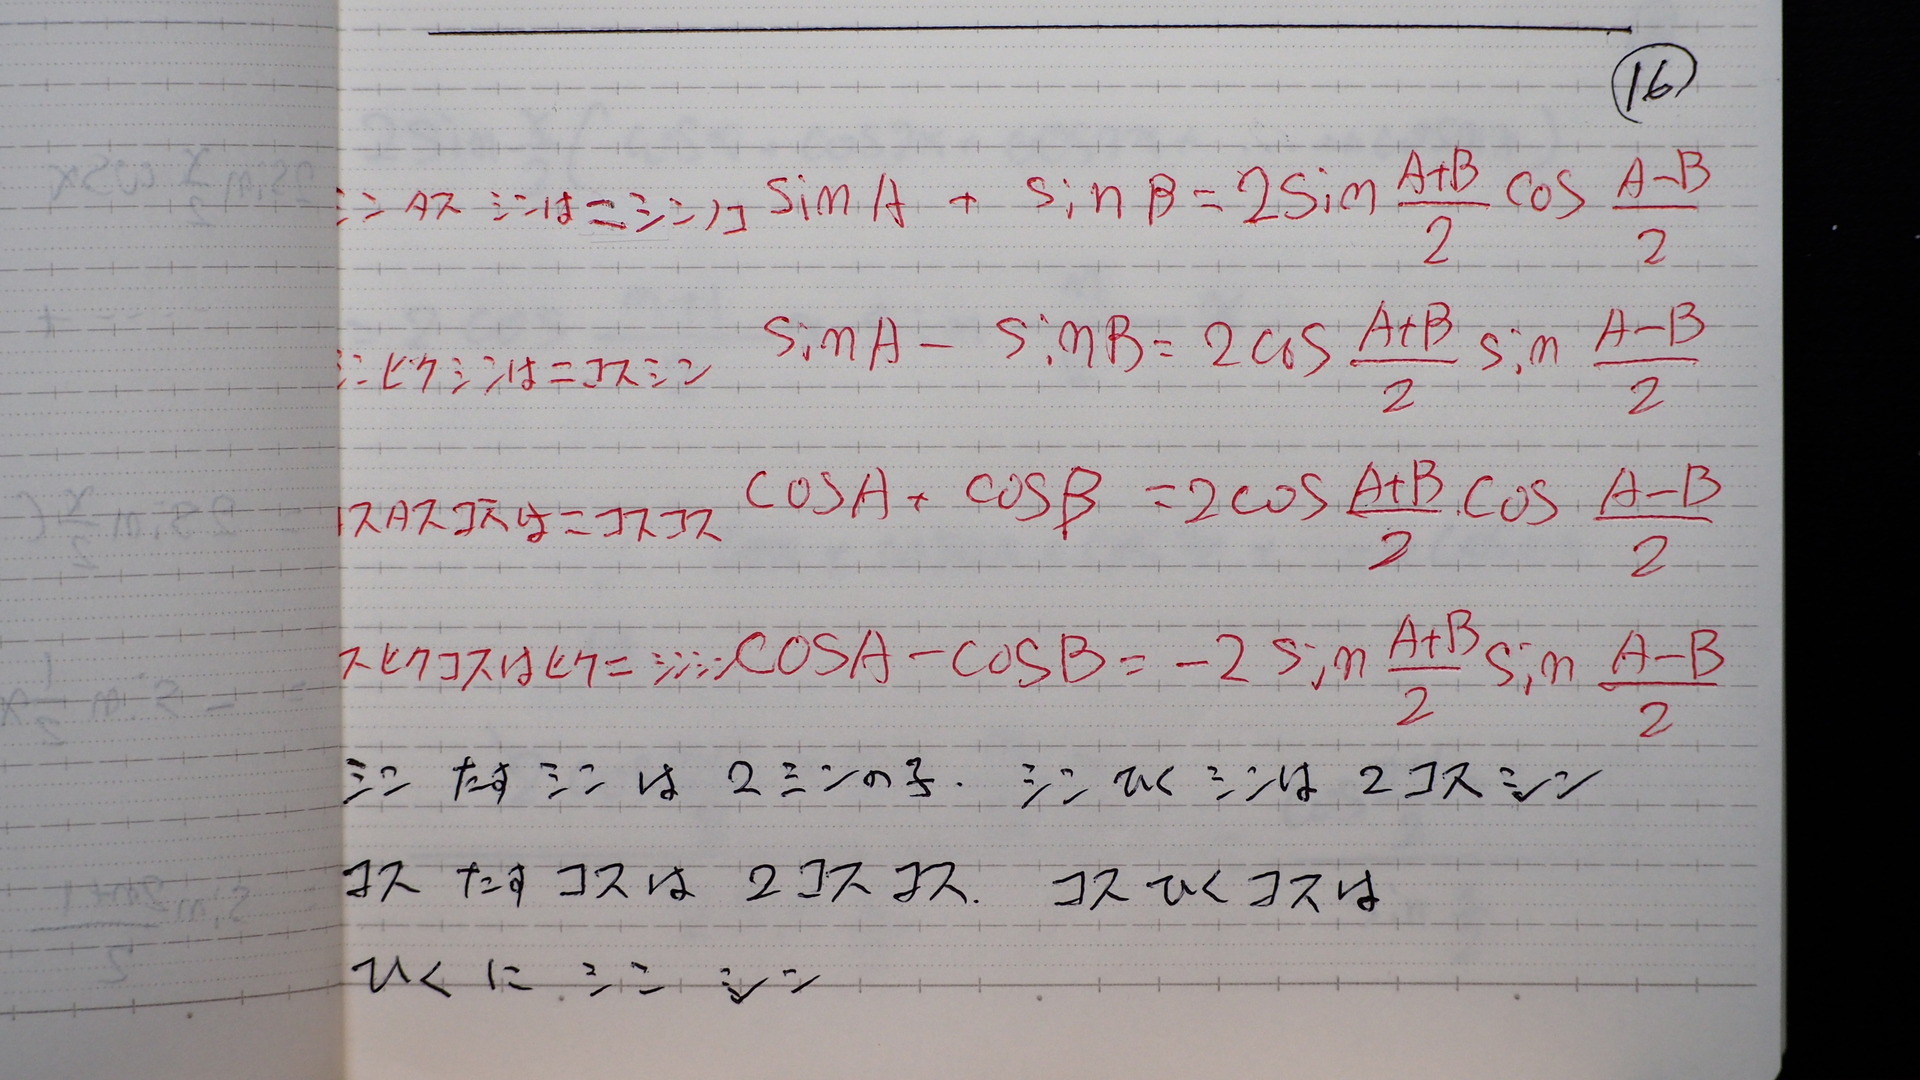 ⑯
シンタスシンはニシンノコ sinA + sinB = 2 sin (A+B)/2 cos (A-B)/2
シンヒクシンはニコスシン sinA - sinB = 2 cos (A+B)/2 sin (A-B)/2
スタスコスはニコスコス cosA + cosB = 2 cos (A+B)/2 cos (A-B)/2
スヒクコスはヒクニシンシン cosA - cosB = -2 sin (A+B)/2 sin (A-B)/2
シン たす シン は 2シンの子. シン ひく シンは 2コスシン
コス たす コスは 2コス コス. コス ひく コスは
ひくに シン シン